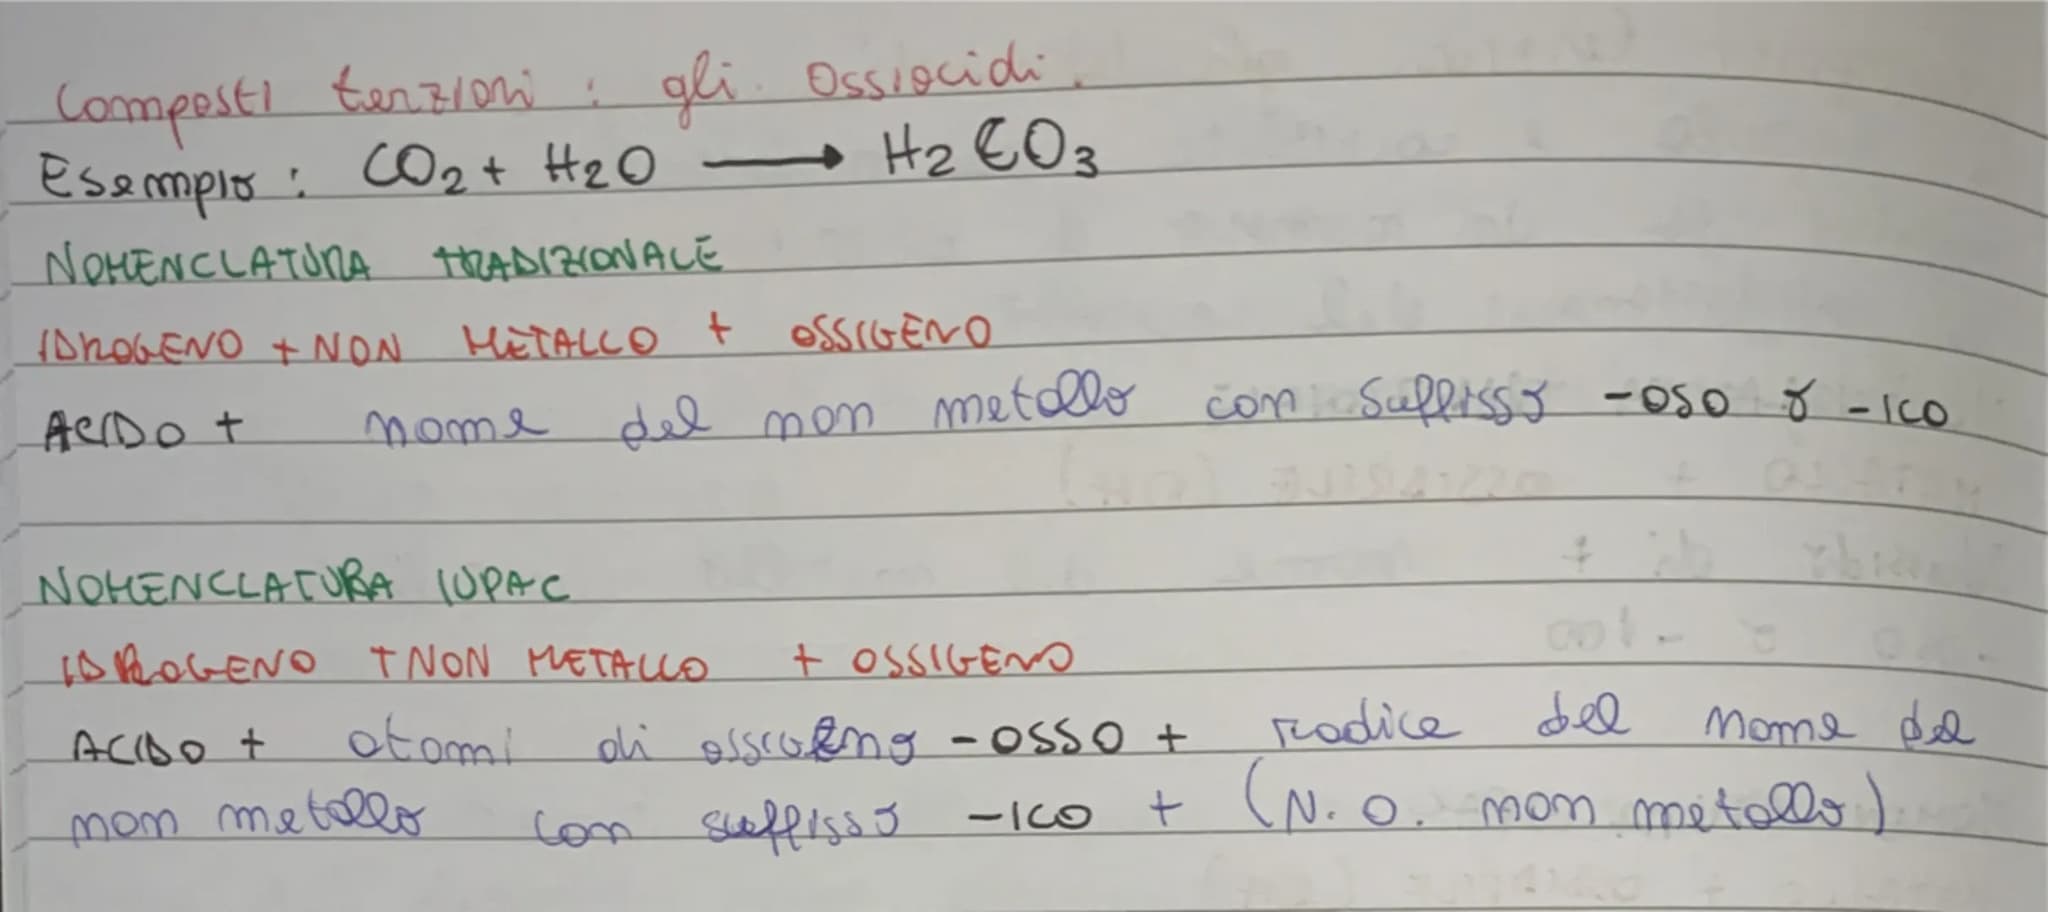 Composti terziari: gli ossiacidi.
Esempio: CO2 + H2O → H2CO3
NOMENCLATURA TRADIZIONALE
IDROGENO + NON METALLO + OSSIGENO
ACIDO + nome del non metallo con suffisso -OSO o -ICO
NOMENCLATURA IUPAC
IDROGENO + NON METALLO + OSSIGENO
ACIDO + atomi di ossigeno -OSSO + radice del nome del
non metallo con suffisso -ICO + (N.O. non metallo)